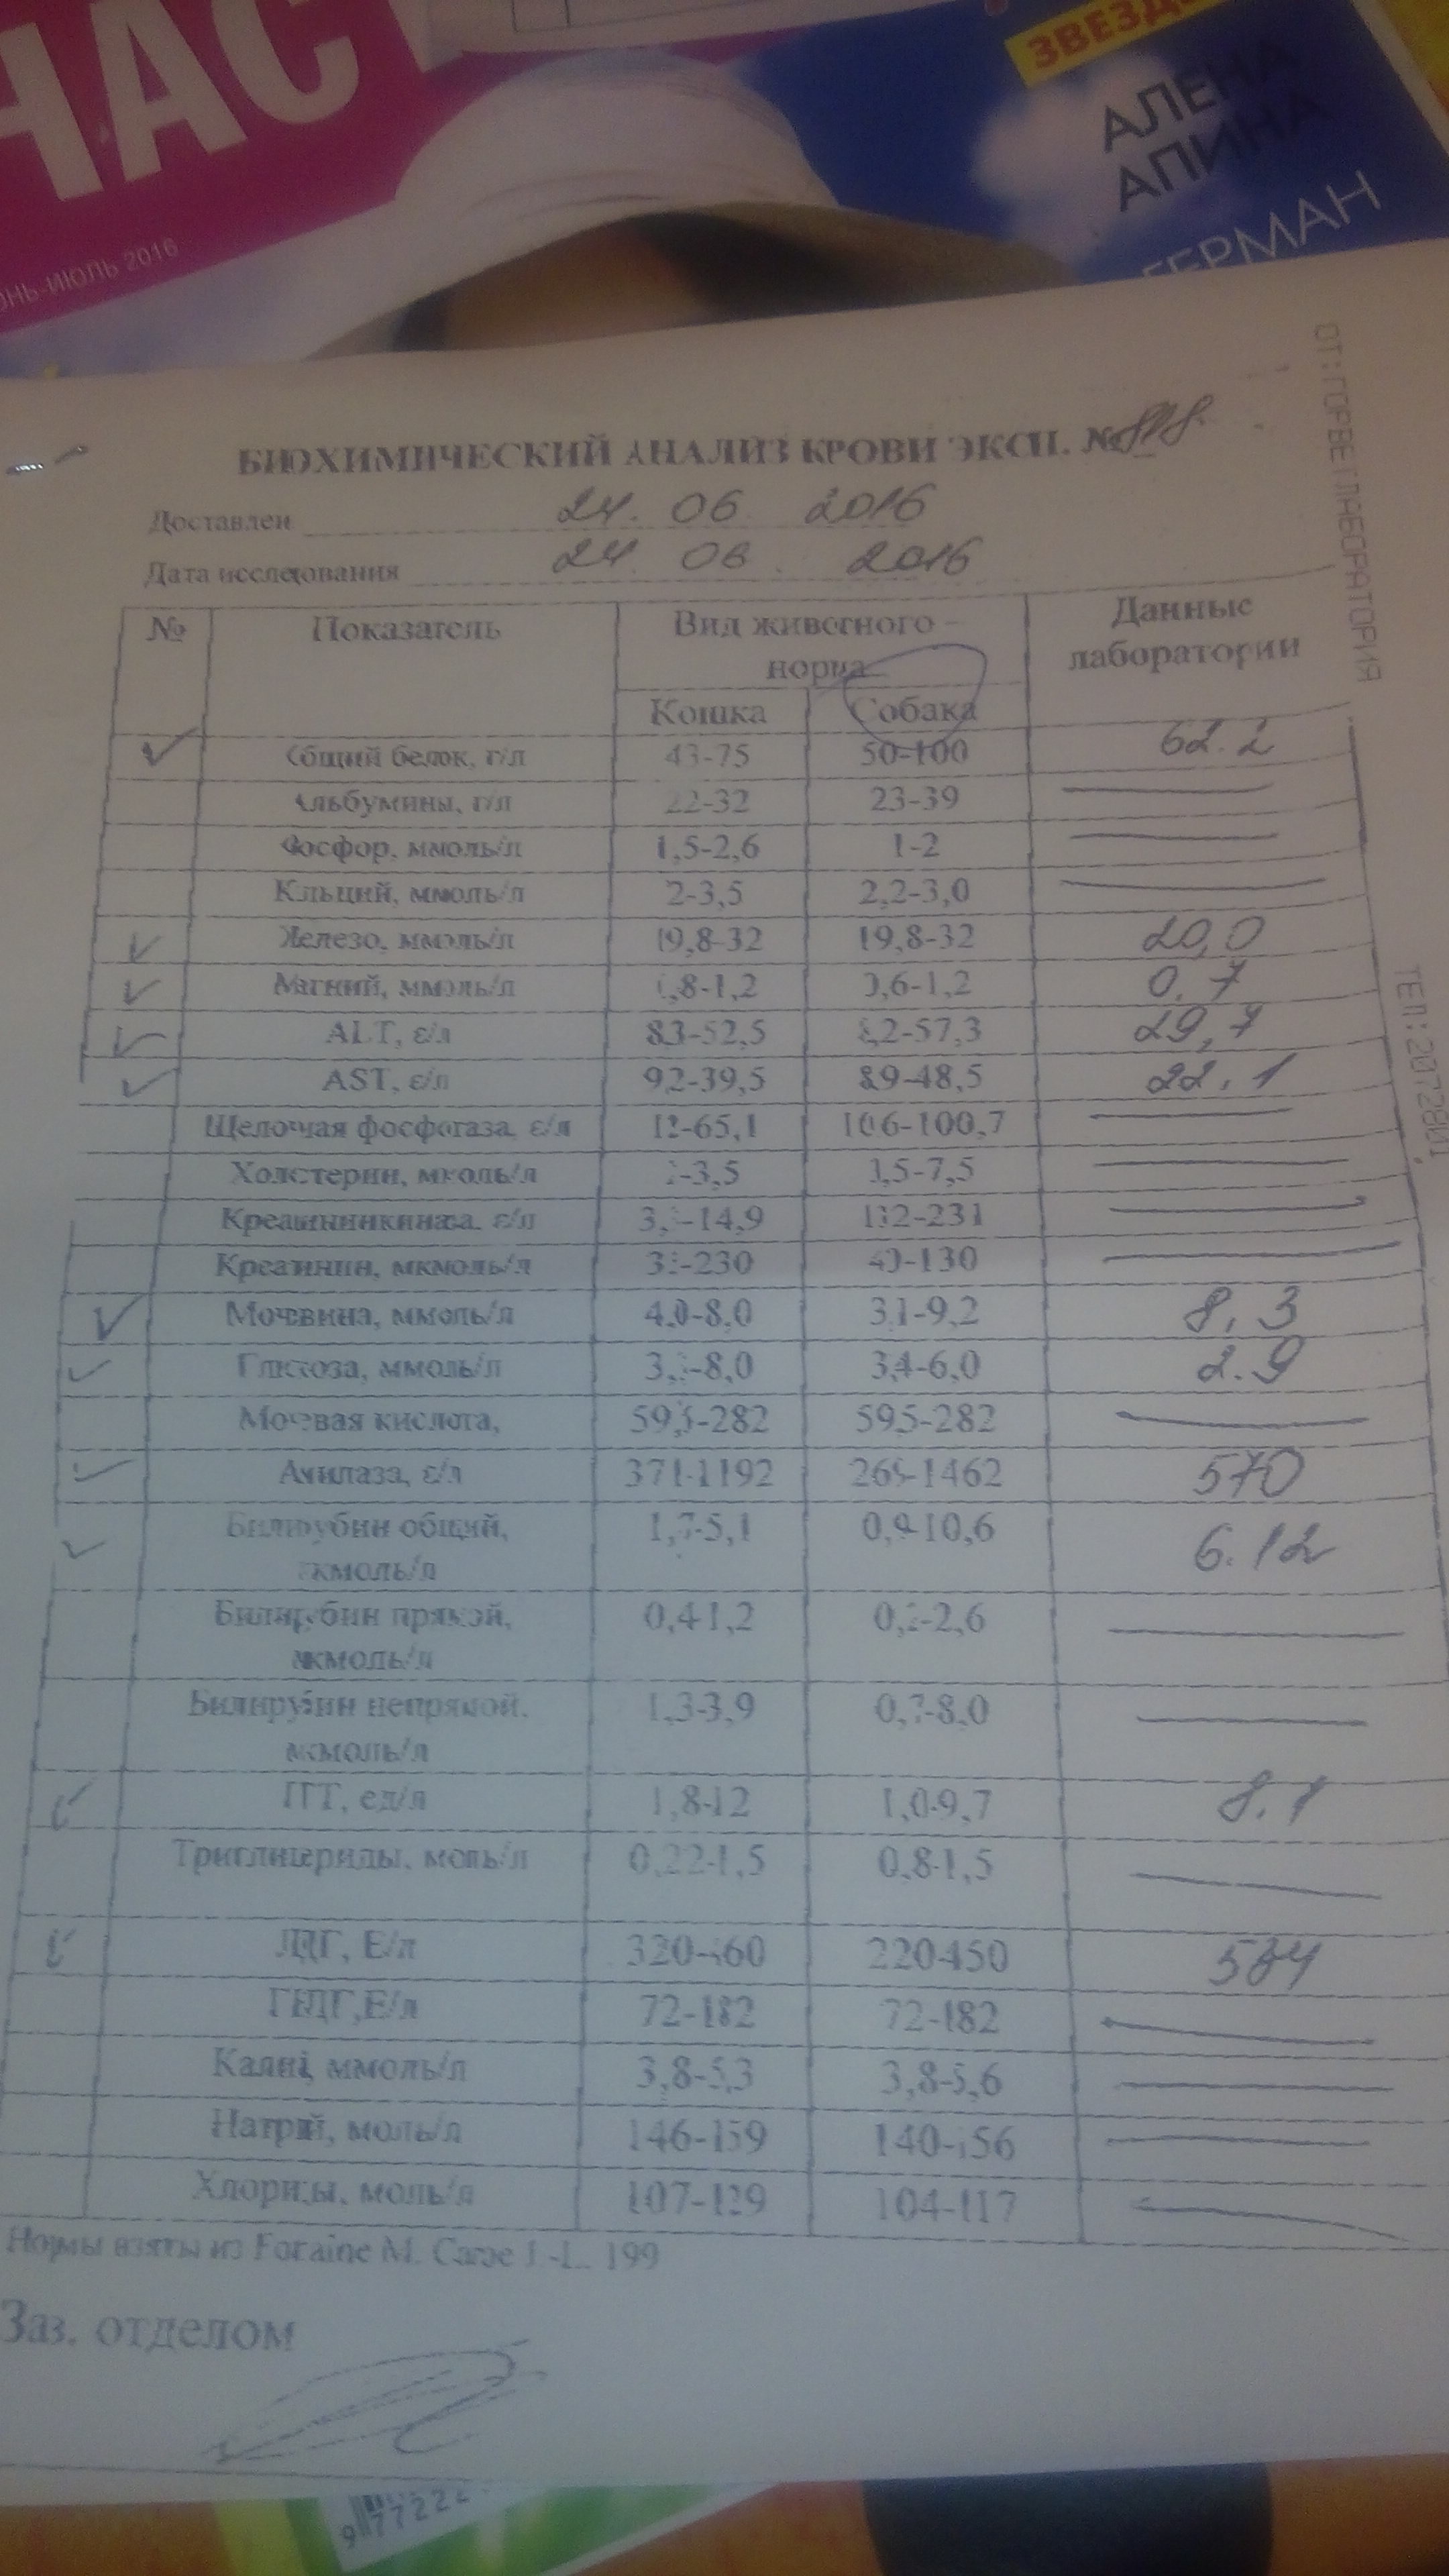 НАС
ЗВЕЗД
АЛЕНА
АПИНА
ГЕРМАН
ИЮЛЬ 2016
ОТ:ГОРВЕТЛАБОРАТОРИЯ
ТЕЛ:2072801
БИОХИМИЧЕСКИЙ АНАЛИЗ КРОВИ ЭКСП. №
Доставлен 24. 06 2016
Дата исследования 24 06. 2016
№ Показатель Вид животного – норма Данные лаборатории
Кошка Собака
Общий белок, г/л 43-75 50-100 62.2
Альбумины, г/л 22-32 23-39
Фосфор, ммоль/л 1,5-2,6 1-2
Кльций, ммоль/л 2-3,5 2,2-3,0
Железо, ммоль/л 19,8-32 19,8-32 20,0
Магний, ммоль/л 0,8-1,2 0,6-1,2 0.7
ALT, ε/л 83-52,5 8,2-57,3 29,7
AST, ε/л 92-39,5 89-48,5 22.1
Щелочная фосфотаза, ε/л 12-65,1 106-100,7
Холстерин, ммоль/л 2-3,5 3,5-7,5
Креатининкиназа, ε/л 132-231
Креатинин, мкмоль/л 40-130
Мочевина, ммоль/л 4,0-8,0 3,1-9,2 8,3
Глюкоза, ммоль/л 3,4-6,0 2.9
Мочевая кислота, 59,5-282 595-282
Амилаза, ε/л 371-1192 269-1462 570
Билирубин общий, мкмоль/л 1,7-5,1 0,9-10,6 6.12
Билирубин прямой, мкмоль/л 0,4-1,2 0,2-2,6
Билирубин непрямой, мкмоль/л 1,3-3,9 0,7-8,0
ГГТ, ед/л 1,8-12 1,0-9,7 8.1
Триглицериды, моль/л 0,22-1,5 0,8-1,5
ЛДГ, Е/л 320-460 220-450 584
ГБДГ,Е/л 72-182 72-182
Калий, ммоль/л 3,8-5,3 3,8-5,6
Натрий, моль/л 146-159 140-156
Хлориды, моль/л 107-129 104-117
Нормы взяты из
Зав. отделом